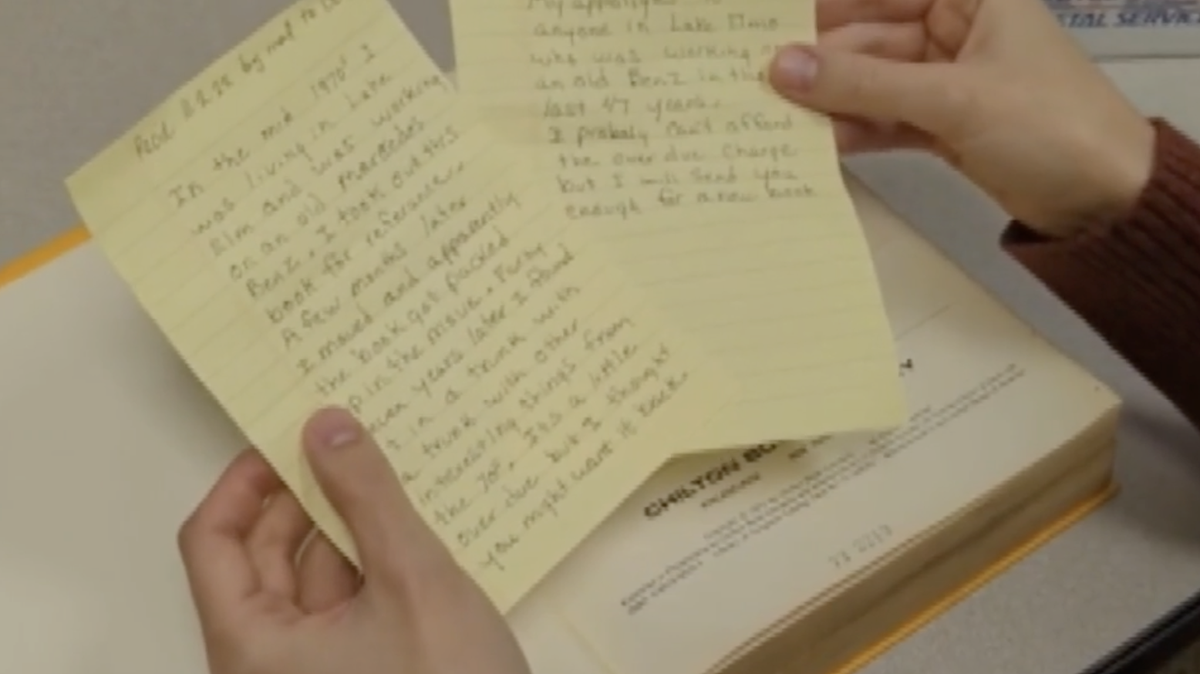 Recd 8.2.22 by mail to
In the mid 1970s I
was living in Lake
Elmo and was working
on an old mercedes
Benz. I took out this
book for reference.
A few months later
I moved and apparently
the book got packed
up in the move. Forty
seven years later I found
it in a trunk with
a trunk with other
interesting things from
the 70s. Its a little
over due but I thought
you might want it back.
My apologies to
anyone in Lake Elmo
who was working on
an old Benz in the
last 47 years.
I probaly can't afford
the over due charge
but I will send you
enough for a new book
CHILTON BO
Y
TAL SERVIC